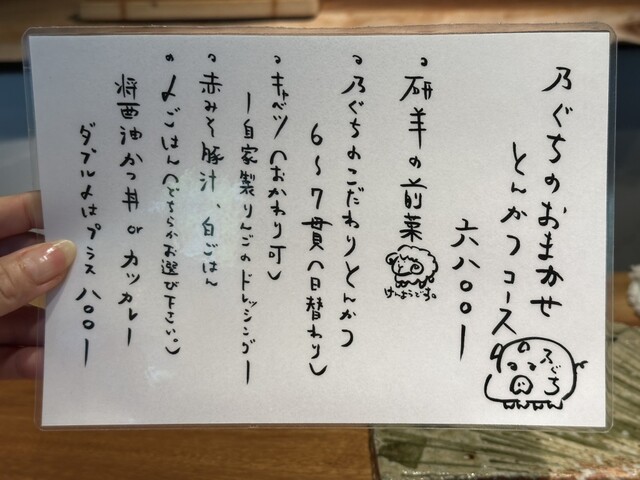 乃ぐちのおまかせ
とんかつコース
六八〇〇ー
乃ぐち
・研羊の前菜
けんようです。
・乃ぐちのこだわりとんかつ
6〜7貫(日替わり)
・キャベツ(おかわり可)
ー自家製りんごのドレッシングー
・赤みそ豚汁、白ごはん
・〆ごはん(どちらかお選び下さい。)
将西油かつ丼 or カツカレー
ダブル〆はプラス八〇〇ー